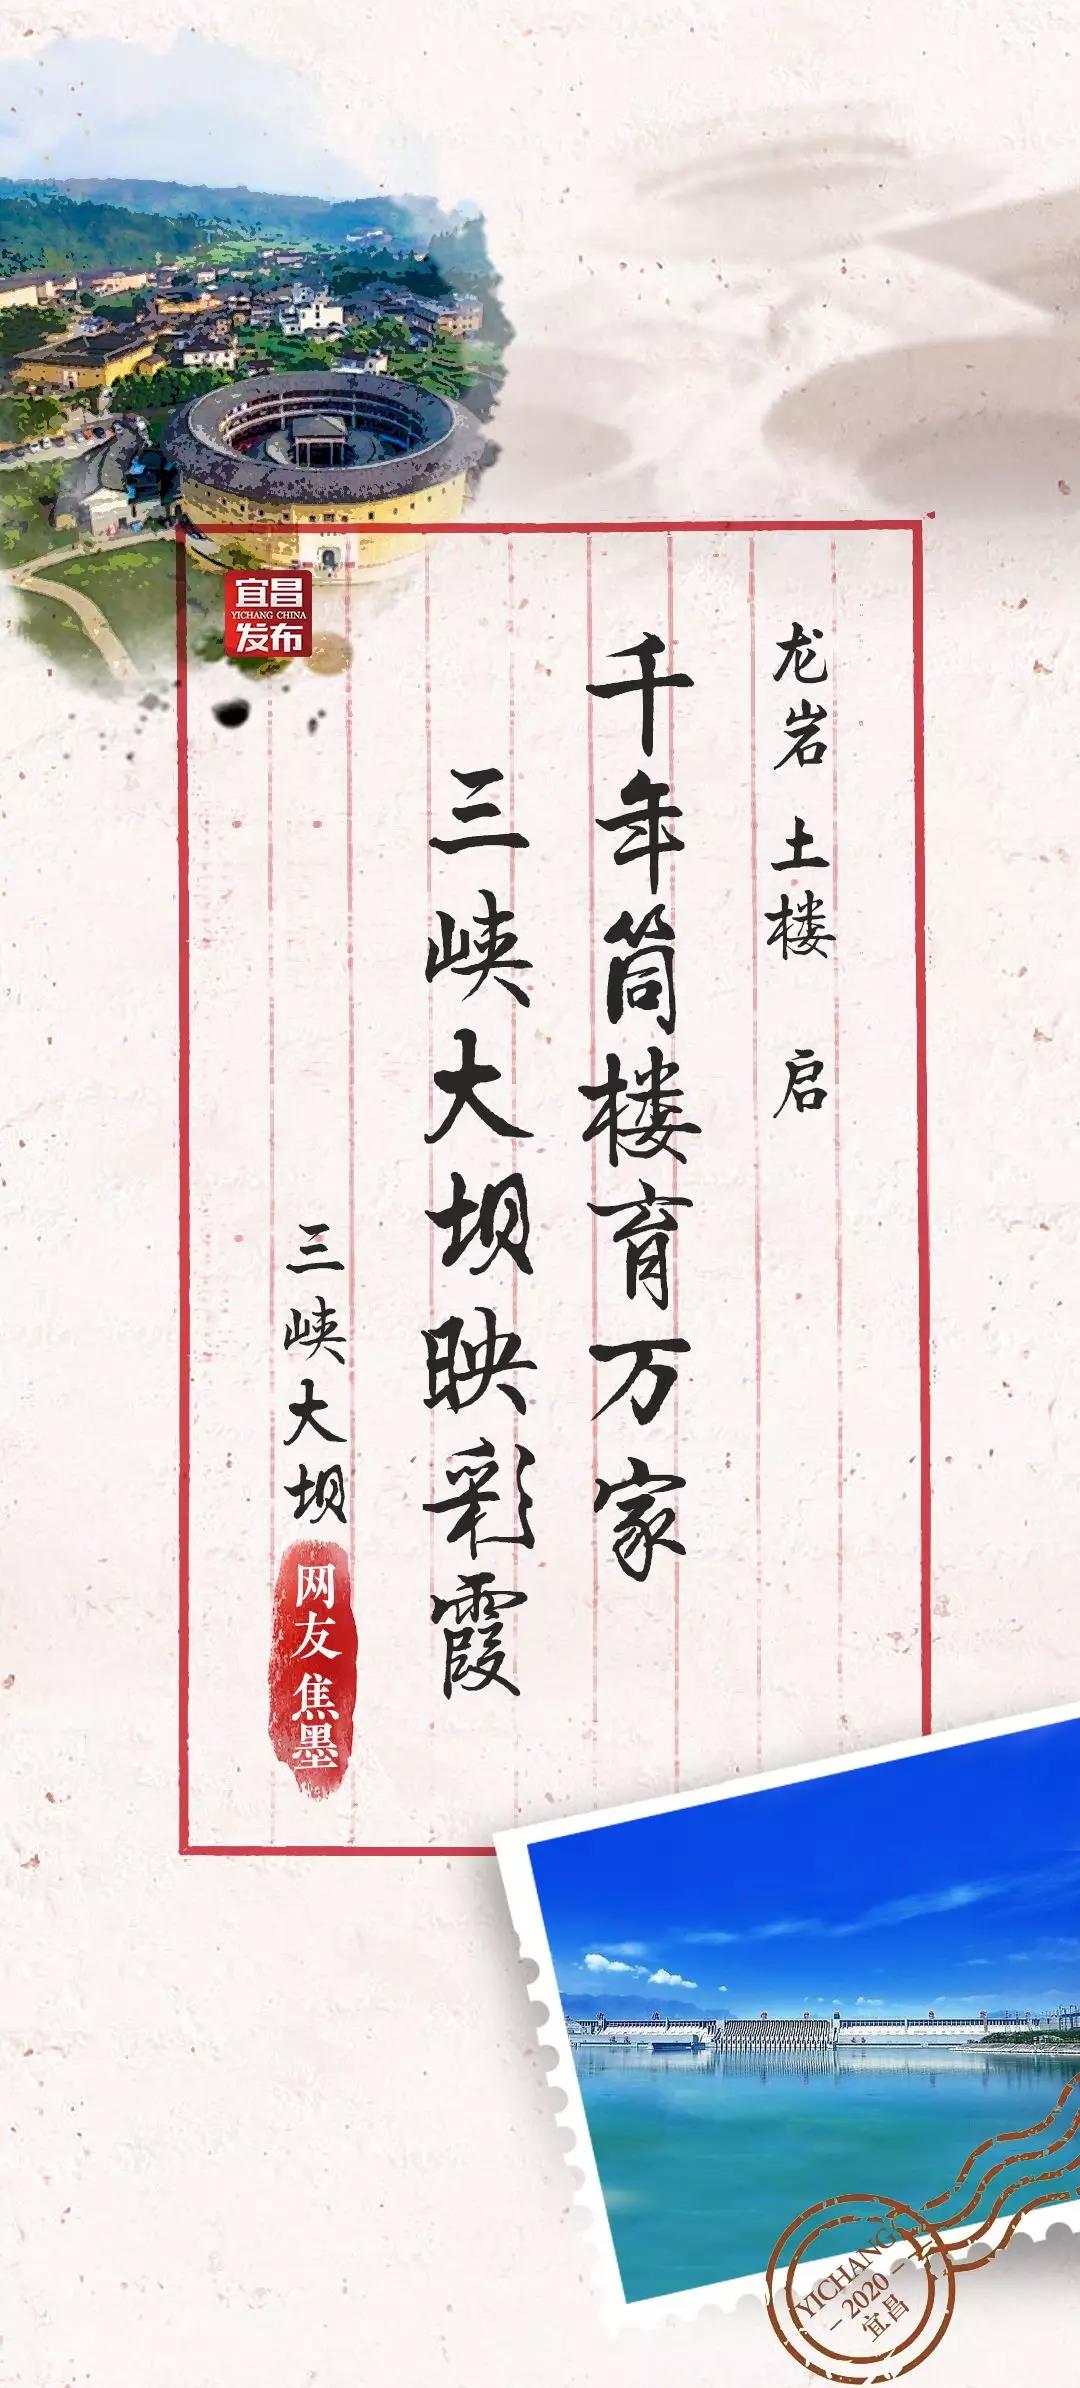 宜昌
YICHANG CHINA
发布
龙岩 土楼 启
千年筒楼育万家
三峡大坝映彩霞
三峡大坝
网友 焦墨
YICHANG
-2020-
宜昌